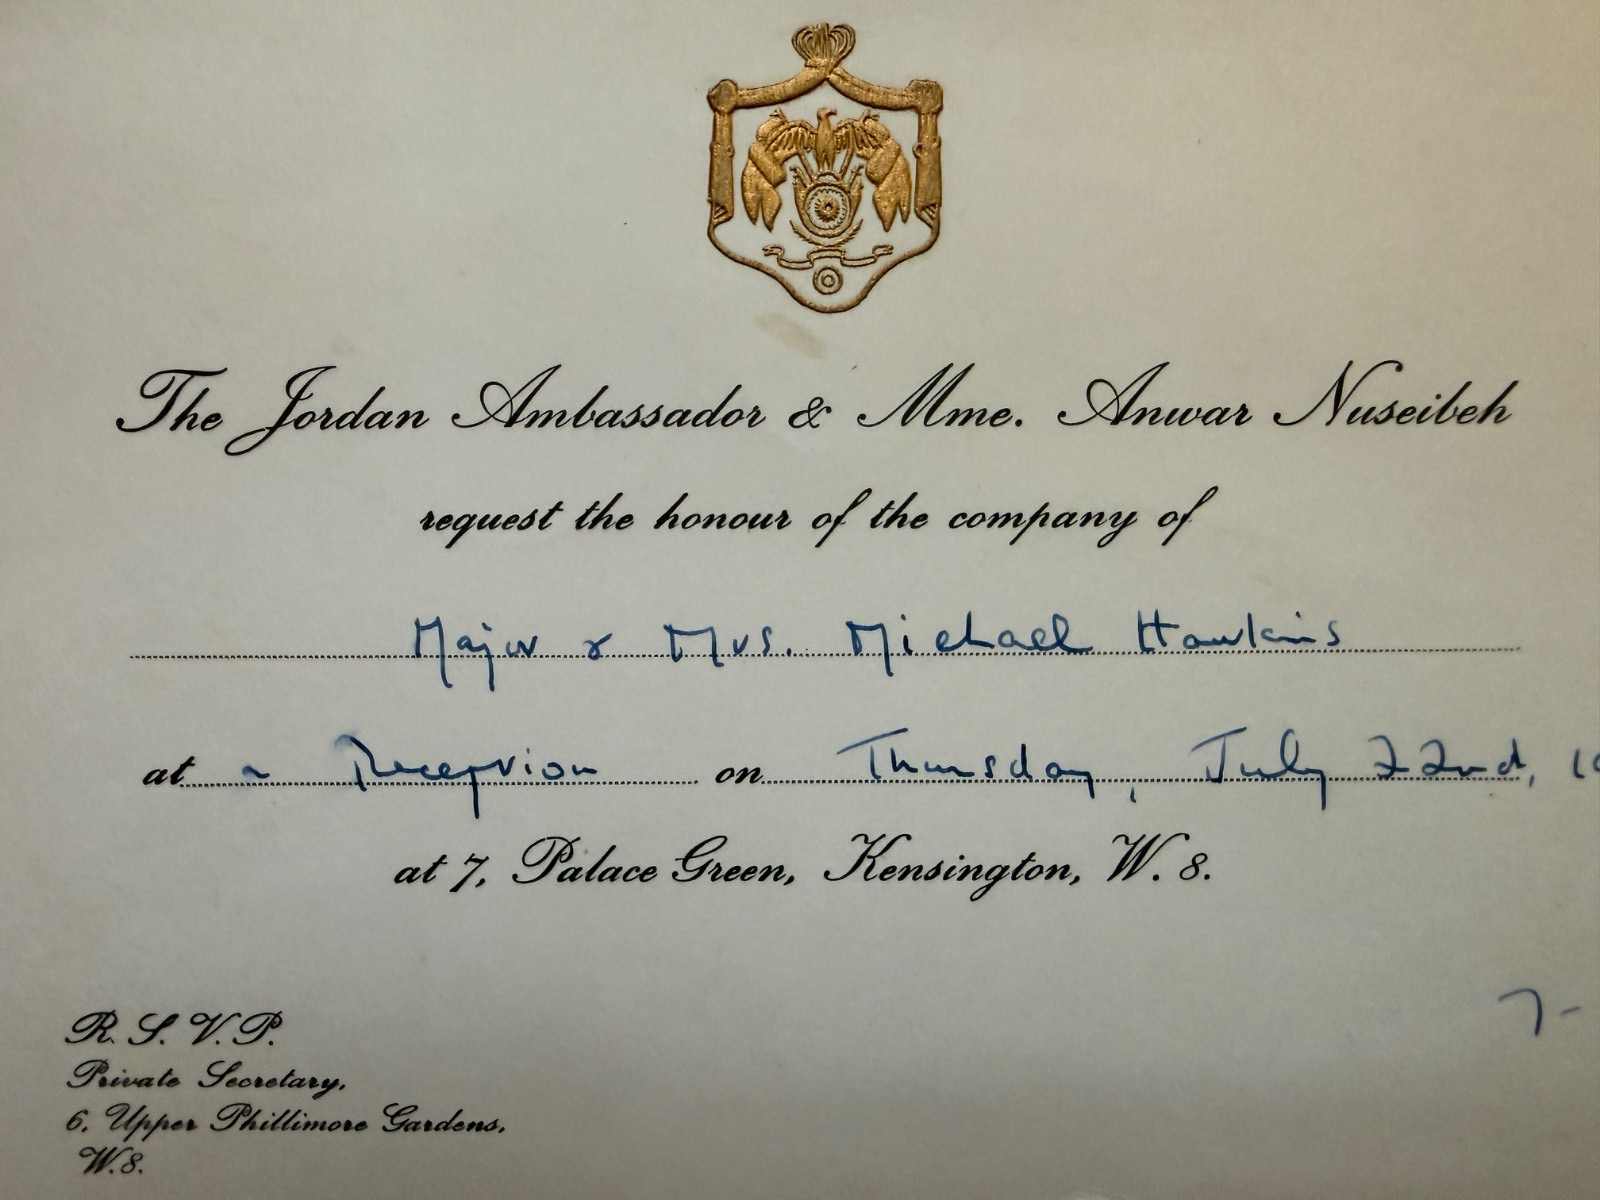 The Jordan Ambassador & Mme. Anwar Nuseibeh
request the honour of the company of
Major & Mrs. Michael Hawkins
at a Reception on Thursday, July 22nd, 19
at 7, Palace Green, Kensington, W. 8.
7-
R. S. V. P.
Private Secretary,
6, Upper Phillimore Gardens,
W.8.